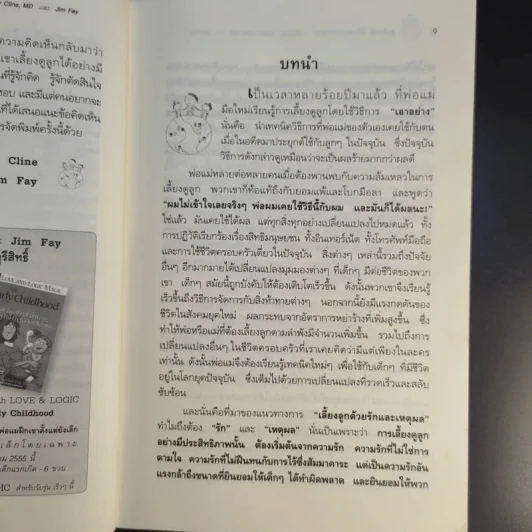 Cline, MD และ Jim Fay
ความคิดเห็นกลับมาว่า
เขาเลี้ยงดูลูกได้อย่างมี
ที่รู้จักคิด รู้จักตัดสินใจ
ชอบ และมีแต่คนอยากจะ
ที่ได้เสนอแนะข้อคิดเห็น
รจัดพิมพ์ครั้งนี้ด้วย
Cline
m Fay
Jim Fay
รีสิทธิ์
LOVE AND LOGIC MAGIC
rly Childhood
th LOVE & LOGIC
ly Childhood
พ่อแม่ฝึกเขาตั้งแต่ยังเล็ก
เด็กโดยเฉพาะ
2555 นี้
เด็กแรกเกิด - 6 ขวบ
GIC สำหรับวัยรุ่น เร็วๆ นี้
9
บทนำ
เป็นเวลาหลายร้อยปีมาแล้ว ที่พ่อแม่
มือใหม่เรียนรู้การเลี้ยงดูลูกโดยใช้วิธีการ "เอาอย่าง"
นั่นคือ นำเทคนิควิธีการที่พ่อแม่ของตัวเองเคยใช้กับตน
เมื่อในอดีตมาประยุกต์ใช้กับลูกๆ ในปัจจุบัน ซึ่งปัจจุบัน
วิธีการดังกล่าวดูเหมือนว่าจะเป็นผลร้ายมากกว่าผลดี
พ่อแม่หลายต่อหลายคนเมื่อต้องพานพบกับความล้มเหลวในการ
เลี้ยงดูลูก พวกเขาก็ท้อแท้ถึงกับยอมแพ้และโบกมือลา และพูดว่า
"ผมไม่เข้าใจเลยจริงๆ พ่อผมเคยใช้วิธีนี้กับผม และมันก็ได้ผลนะ!"
ใช่แล้ว มันเคยใช้ได้ผล แต่ทุกสิ่งทุกอย่างเปลี่ยนแปลงไปหมดแล้ว ทั้ง
การปฏิวัติเรียกร้องเรื่องสิทธิมนุษยชน ทั้งอินเทอร์เน็ต ทั้งโทรศัพท์มือถือ
และการใช้ชีวิตครอบครัวเดี่ยวในปัจจุบัน สิ่งต่างๆ เหล่านี้รวมถึงปัจจัย
อื่นๆ อีกมากมายได้เปลี่ยนแปลงมุมมองต่างๆ ที่เด็กๆ มีต่อชีวิตของพวก
เขา เด็กๆ สมัยนี้ถูกบังคับให้ต้องเติบโตเร็วขึ้น ดังนั้นพวกเขาจึงเรียนรู้
เร็วขึ้นถึงวิธีการจัดการกับสิ่งท้าทายต่างๆ นอกจากนี้ยังมีแรงกดดันของ
ชีวิตในสังคมยุคใหม่ ผลกระทบจากอัตราการหย่าร้างที่เพิ่มสูงขึ้น ซึ่ง
ทำให้พ่อหรือแม่ที่ต้องเลี้ยงลูกตามลำพังมีจำนวนเพิ่มขึ้น รวมไปถึงการ
เปลี่ยนแปลงอื่นๆ ในชีวิตครอบครัวที่เราเคยคิดว่ามีแต่เพียงในละคร
เท่านั้น ดังนั้นพ่อแม่จึงต้องเรียนรู้เทคนิคใหม่ๆ เพื่อใช้กับเด็กๆ ที่มีชีวิต
อยู่ในโลกยุคปัจจุบัน ซึ่งเต็มไปด้วยการเปลี่ยนแปลงที่รวดเร็วและสลับ
ซับซ้อน
และนั่นคือที่มาของแนวทางการ "เลี้ยงลูกด้วยรักและเหตุผล"
ทำไมถึงต้อง "รัก" และ "เหตุผล" นั่นเป็นเพราะว่า การเลี้ยงดูลูก
อย่างมีประสิทธิภาพนั้น ต้องเริ่มต้นจากความรัก ความรักที่ไม่ใช่การ
ตามใจ ความรักที่ไม่ฝืนทนกับการไร้ซึ่งสัมมาคารวะ แต่เป็นความรักอัน
แรงกล้าถึงขนาดที่ยินยอมให้เด็กๆ ได้ทำผิดพลาด และยินยอมให้พวก